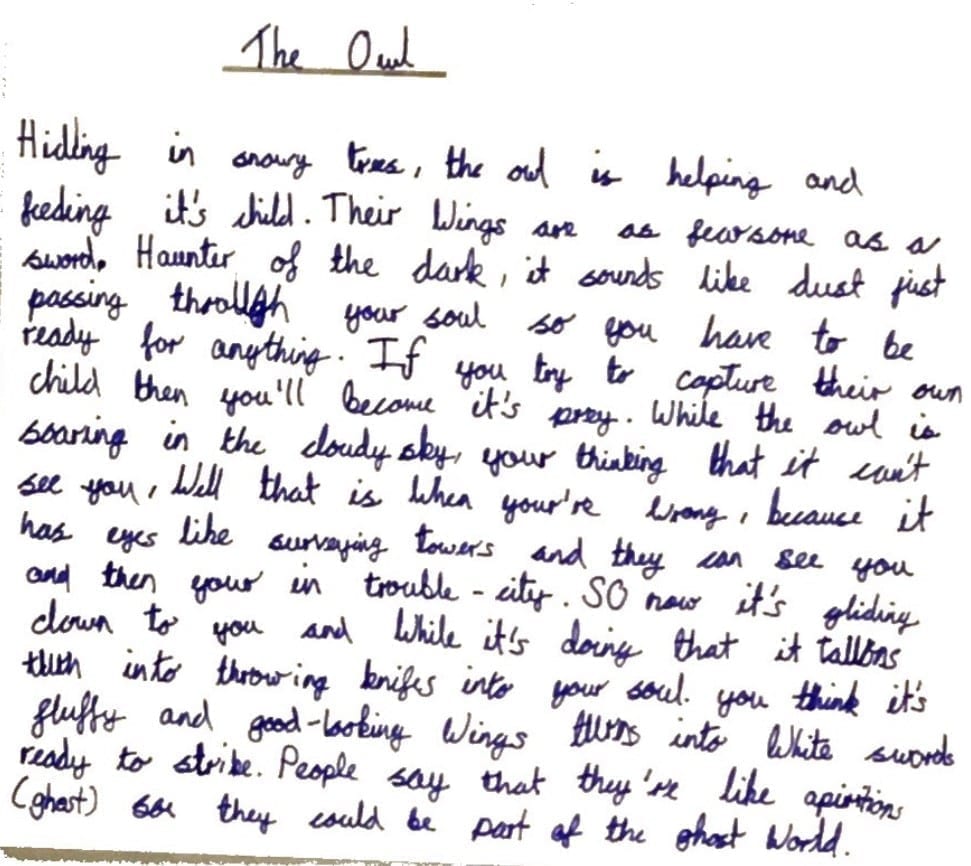 The Owl
Hidding in snowy trees, the owl is helping and
feeding it's child. Their Wings are as fearsome as a
sword. Haunter of the dark, it sounds like dust just
passing through your soul so you have to be
ready for anything. If you try to capture their own
child then you'll become it's prey. While the owl is
soaring in the cloudy sky, your thinking that it can't
see you, Well that is When your're Wrong, because it
has eyes like surveying towers and they can see you
and then your in trouble-city. SO now it's gliding
down to you and While it's doing that it tallons
turn into throwing knifes into your soul. you think it's
fluffy and good-looking Wings turns into White swords
ready to strike. People say that they're like apirations
(ghost) so they could be part of the ghost World.